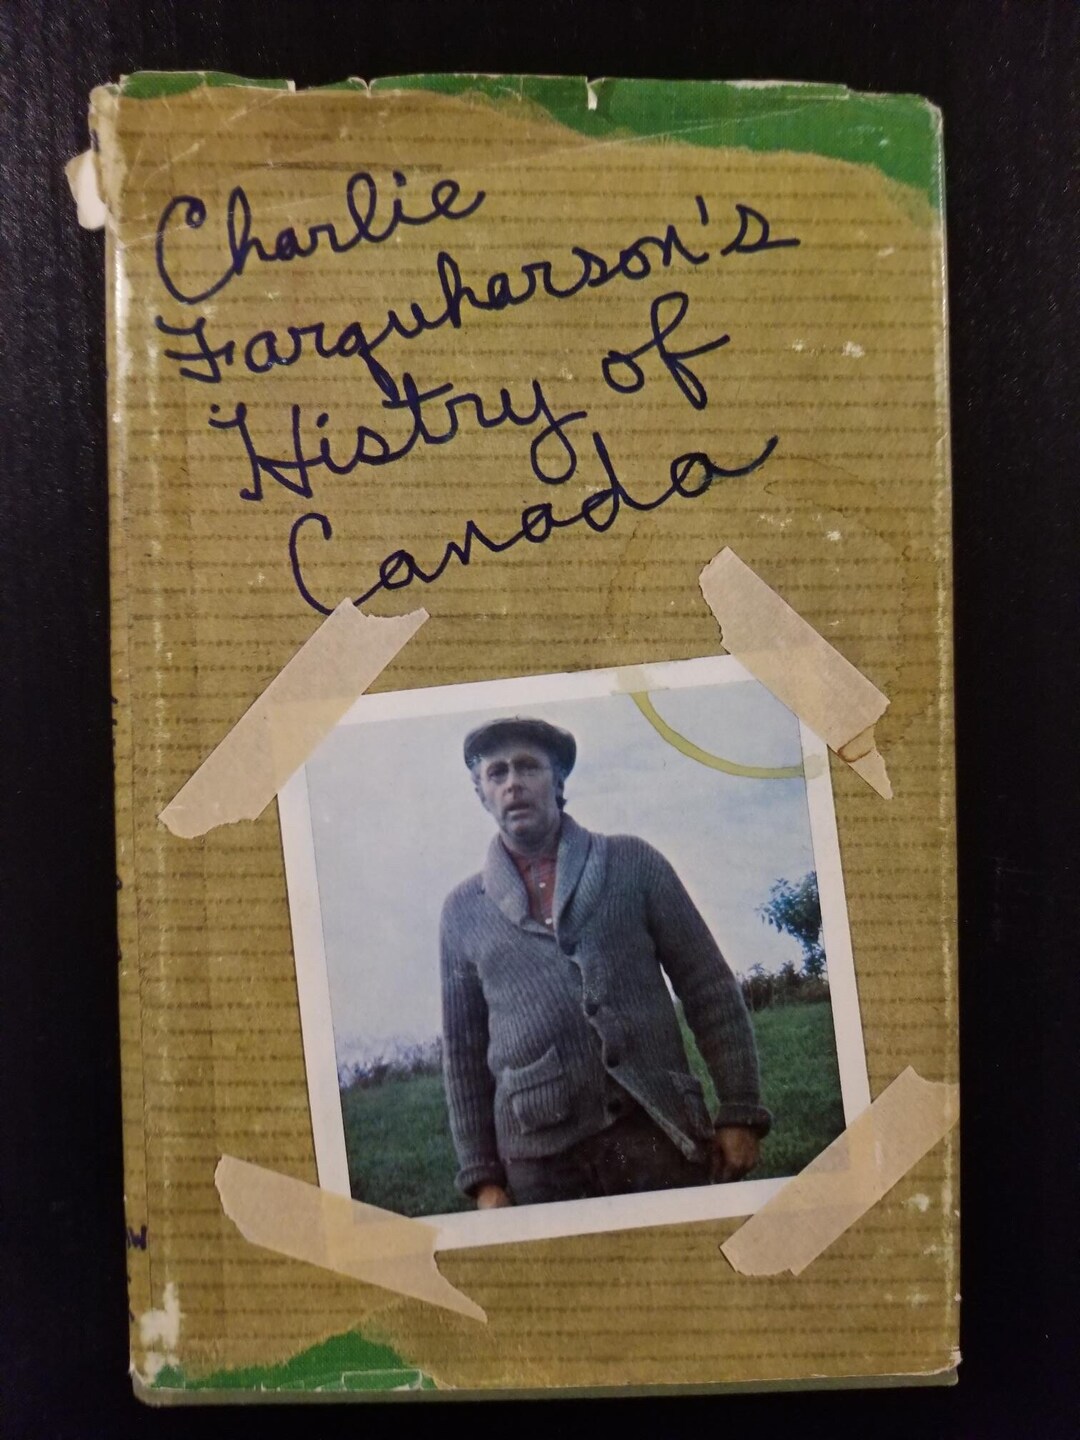 Charlie
Farquharson's
Histry of
Canada
W